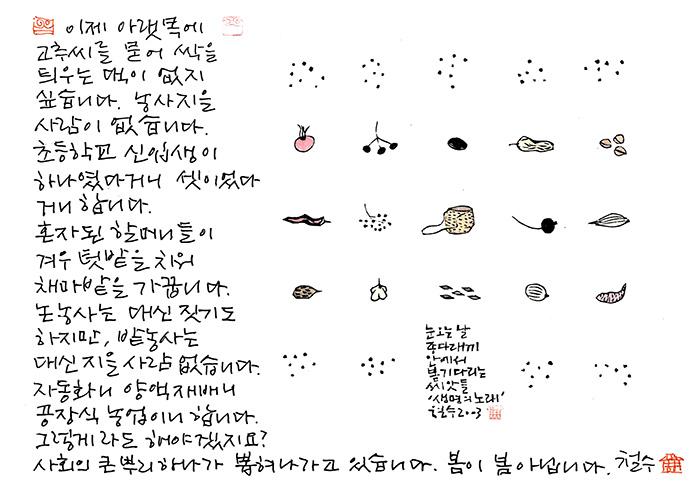 이제 아랫목에
고추씨를 묻어 싹을
틔우는 댁이 없지
싶습니다. 농사지을
사람이 없습니다.
초등학교 신입생이
하나였다거니 셋이었다
거니 합니다.
혼자된 할머니들이
겨우 텃밭을 치워
채마밭을 가꿉니다.
논농사는 대신 짓기도
하지만, 밭농사는
대신 지을 사람 없습니다.
자동화니 양액재배니
공장식 농업이니 합니다.
그렇게라도 해야겠지요?
사회의 큰 뿌리 하나가 뽑혀나가고 있습니다. 봄이 봄 아닙니다. 철수
눈오는 날
종다래끼
안에서
봄기다리는
씨앗들
'생명의 노래'
철수 2003